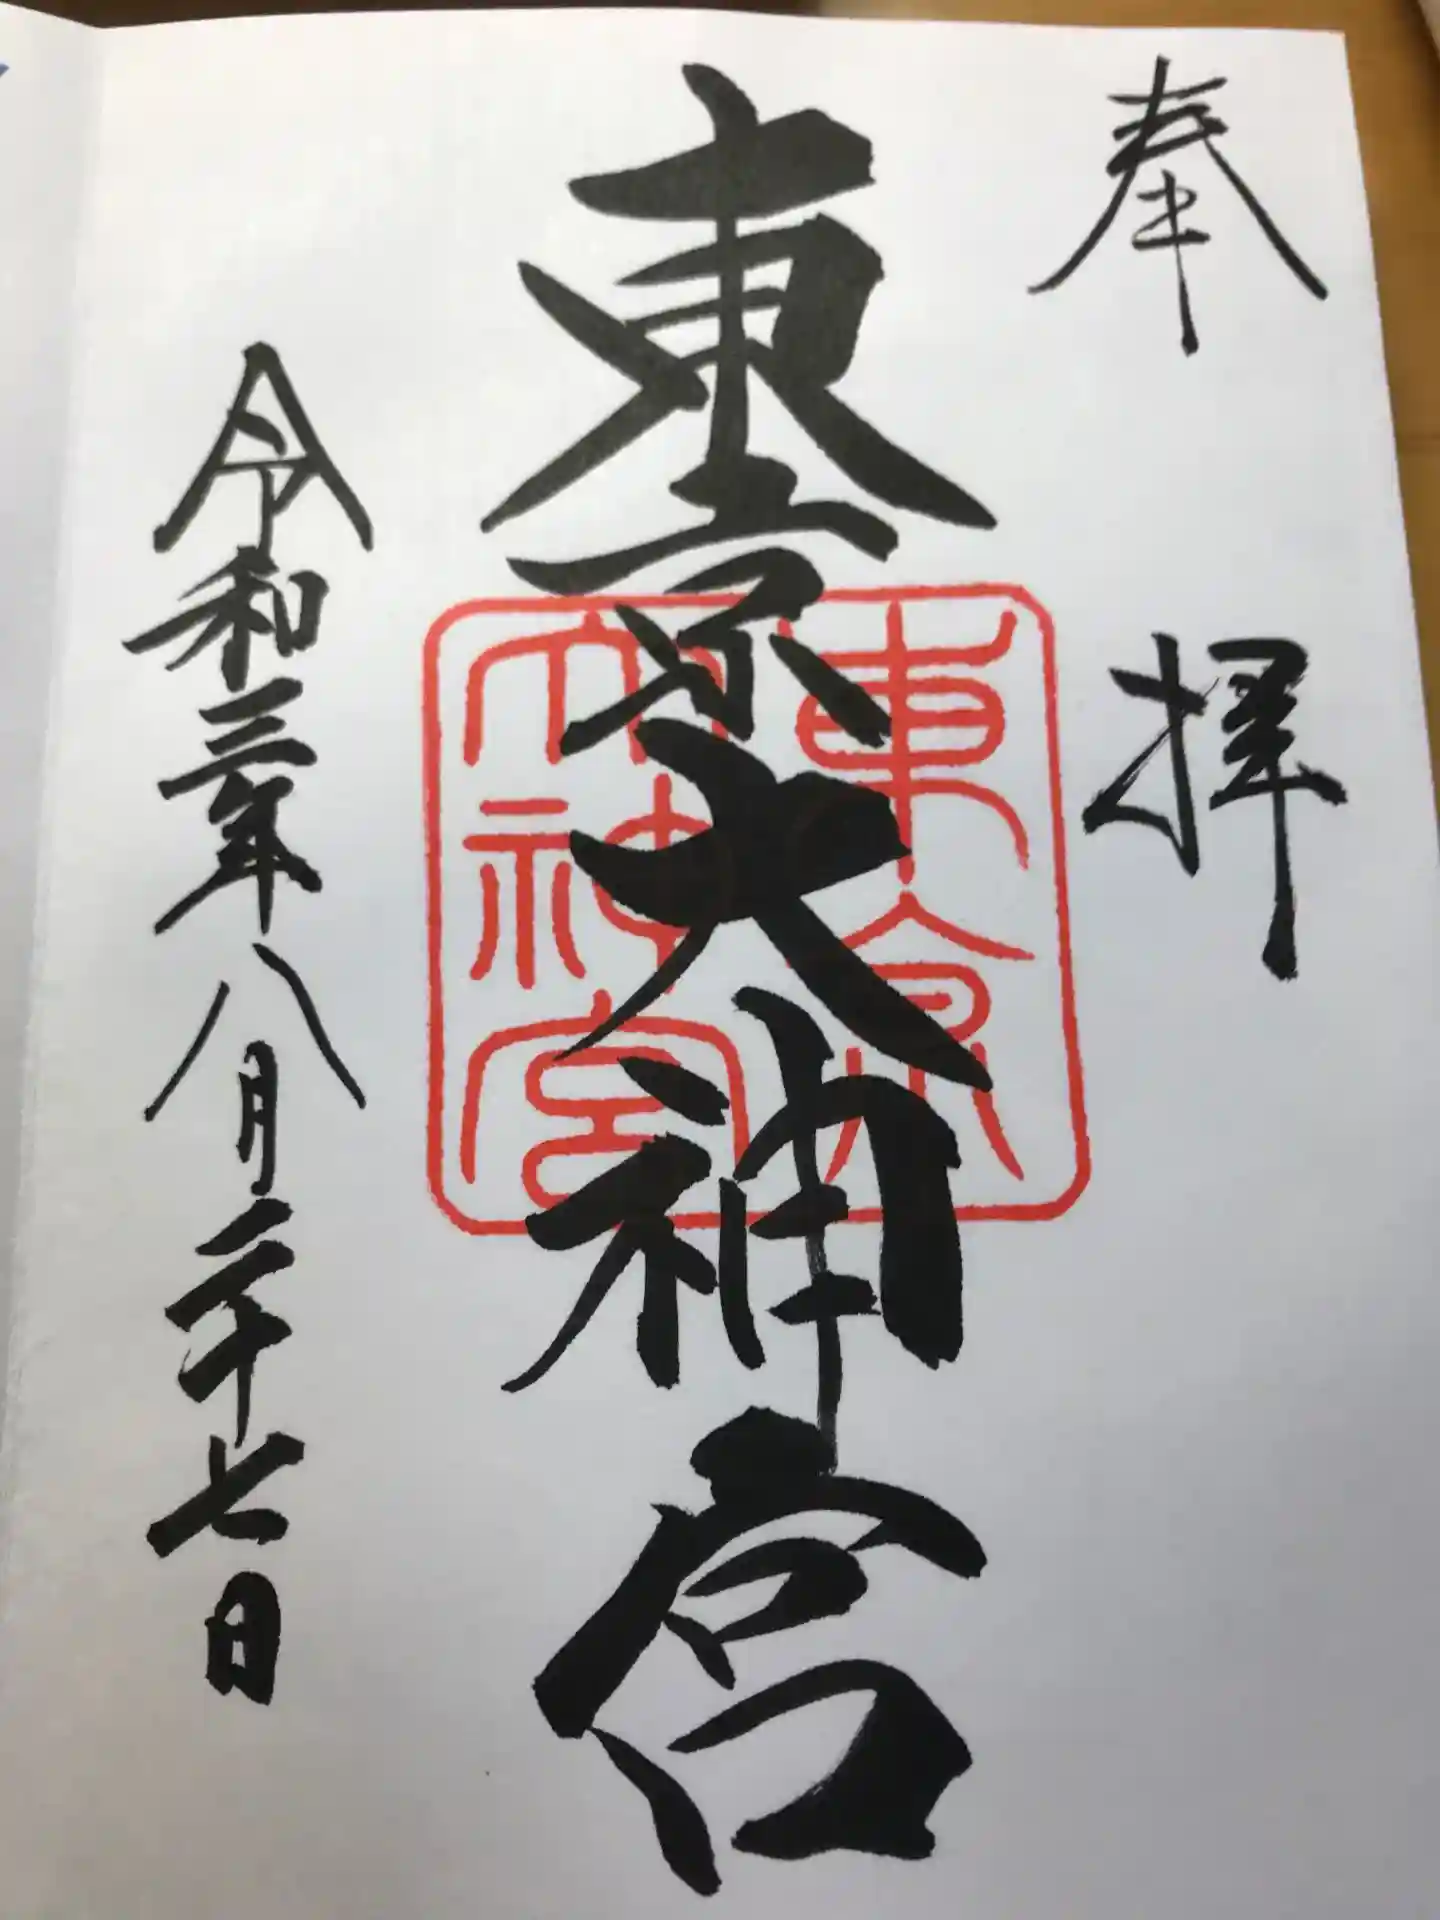 奉拝
東京大神宮
東京
大神宮
令和三年八月二十七日